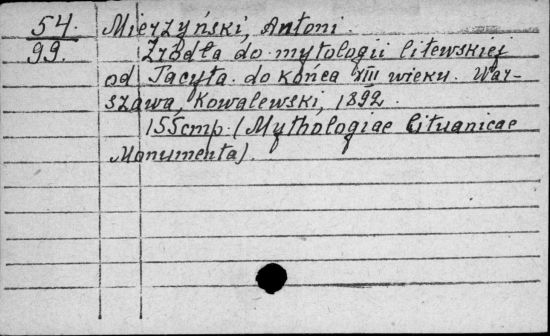 54. Mierzyński, Antoni.
99. Źródła do mytologii litewskiej
od Tacyta do końca XIII wieku. War-
szawa, Kowalewski, 1892.
155 стр. (Mythologiae Lituanicae
Monumenta).